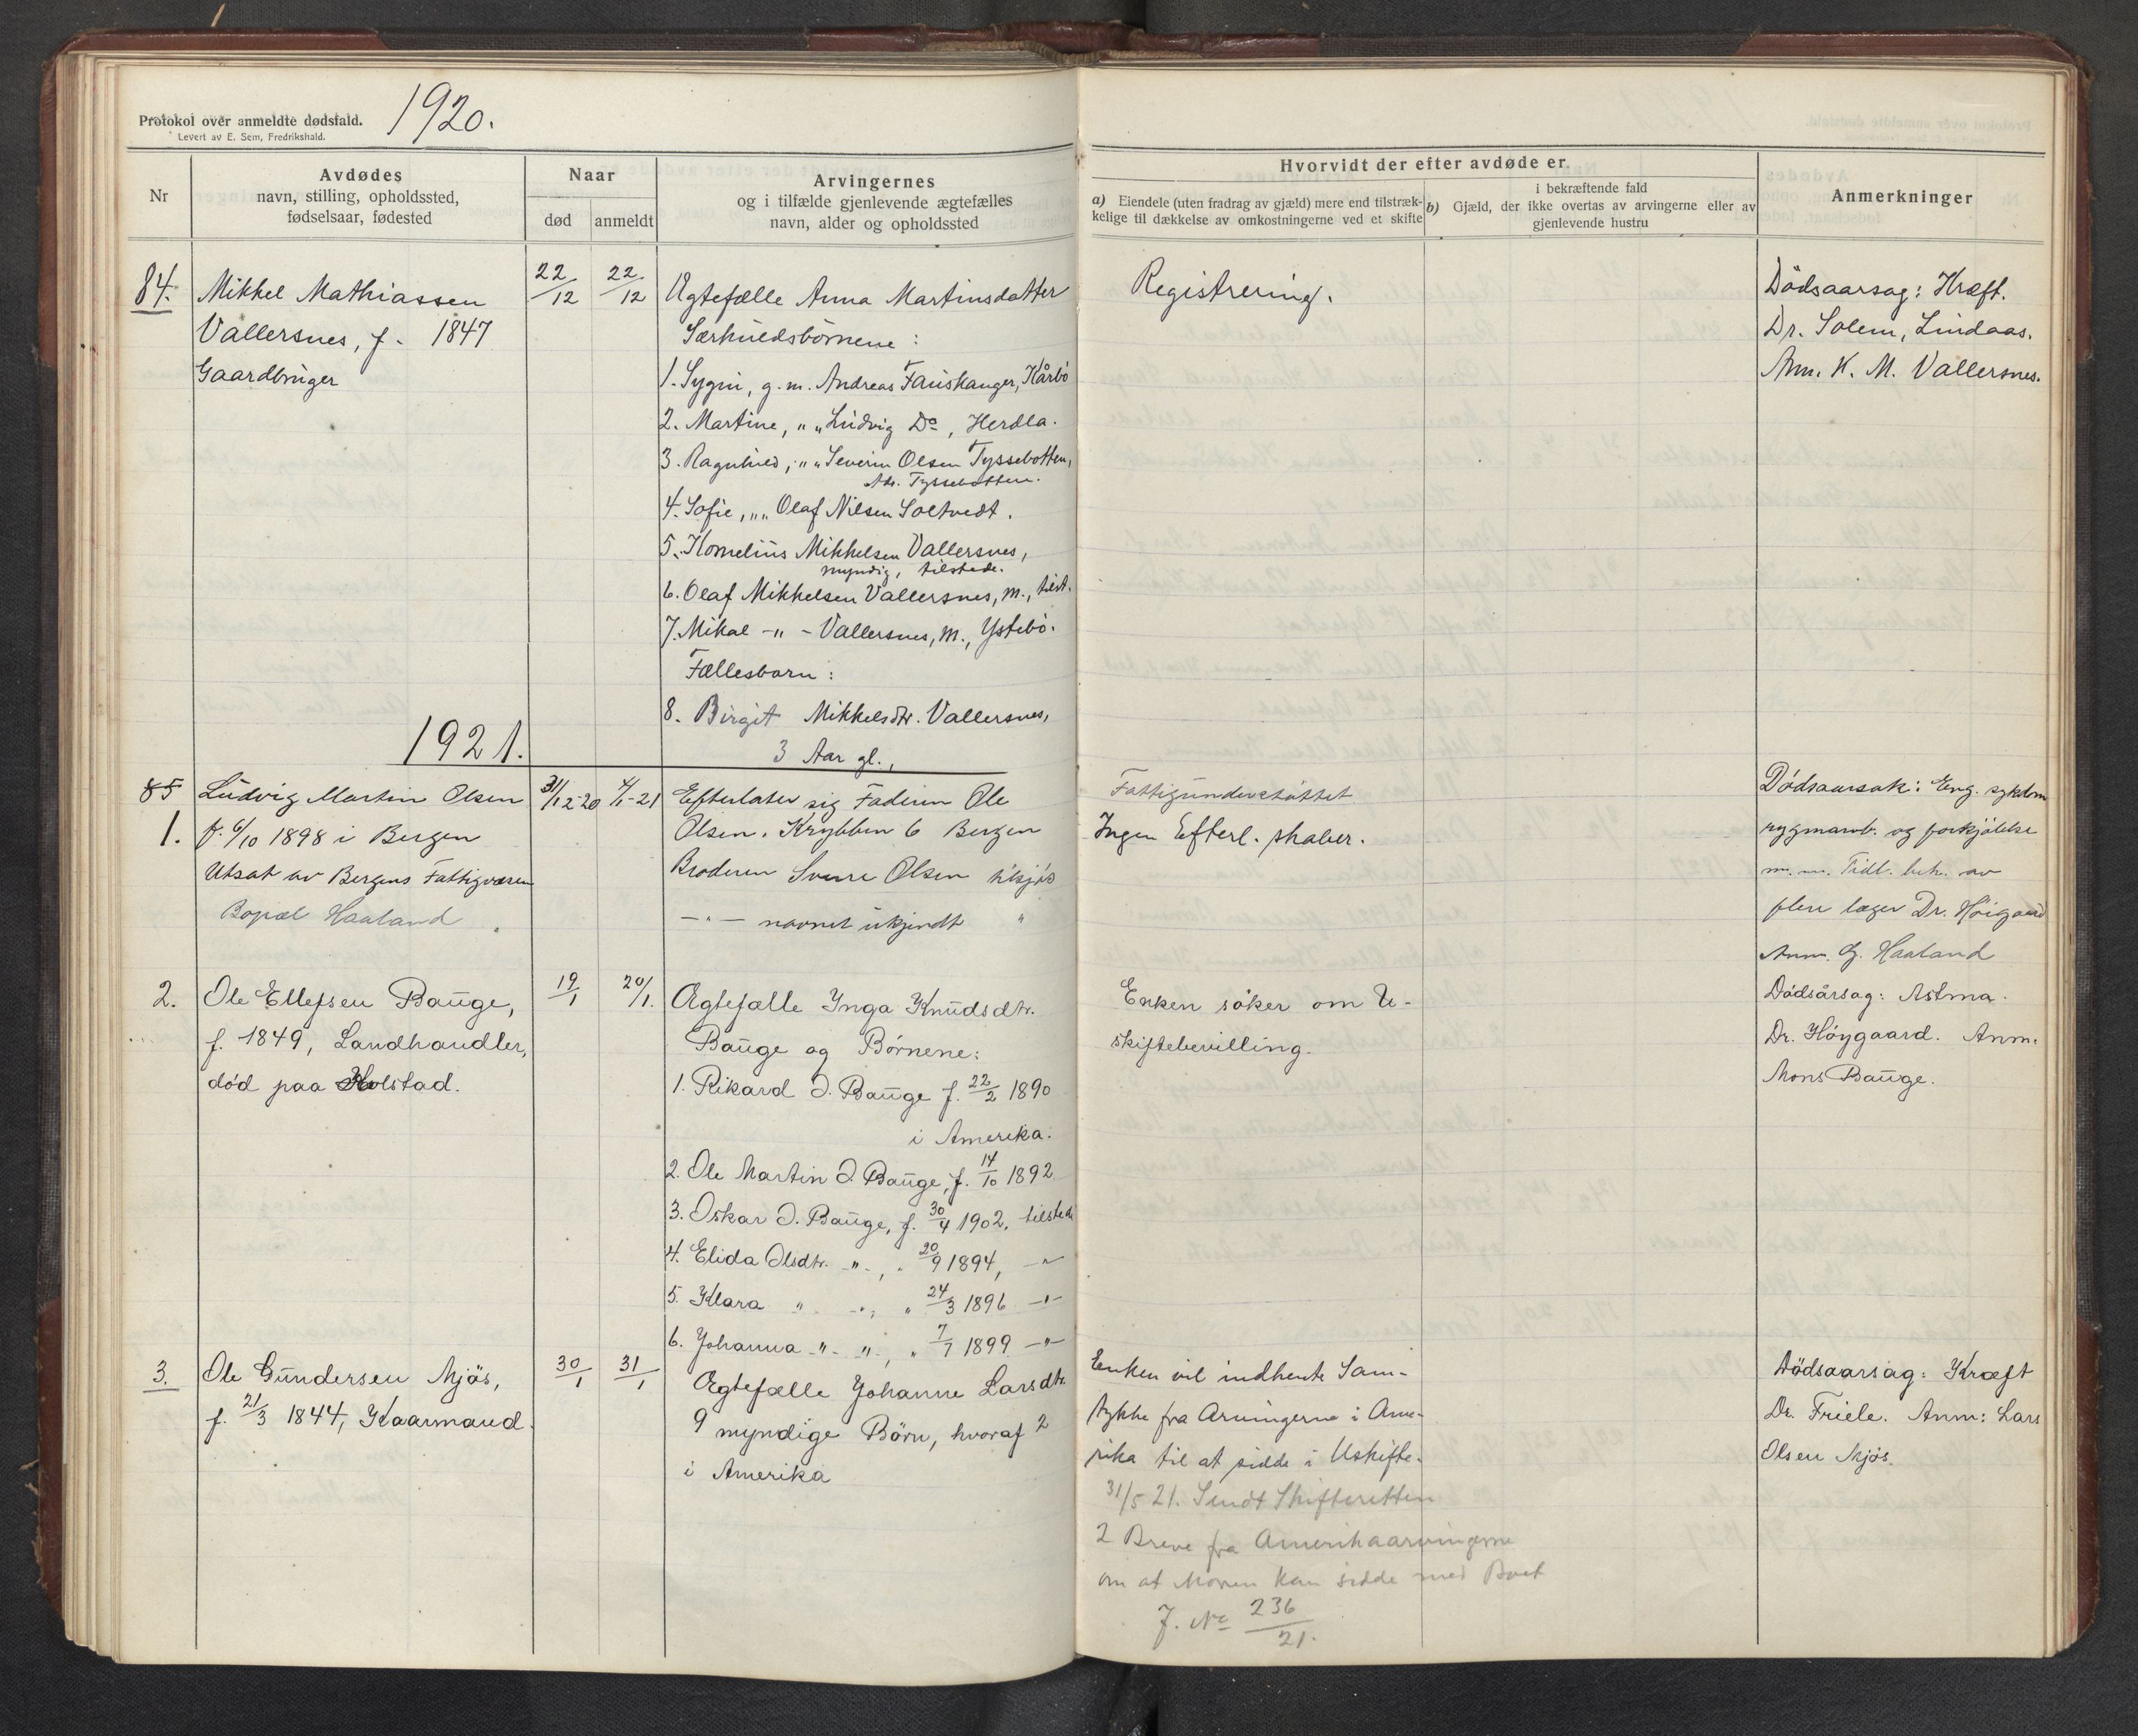 Protokol over anmeldte dødsfald.
Levert av E. Sem, Fredrikshald.
1920.
Nr
Avdødes
navn, stilling, opholdssted,
fødselsaar, fødested
Naar
død
anmeldt
Arvingernes
og i tilfælde gjenlevende ægtefælles
navn, alder og opholdssted
Hvorvidt der efter avdøde er
a) Eiendele (uten fradrag av gjæld) mere end tilstræk-
kelige til dækkelse av omkostningerne ved et skifte
i bekræftende fald
b) Gjæld, der ikke overtas av arvingerne eller av
gjenlevende hustru
Anmerkninger
84.
Mikkel Mathiassen
Vallersnes, f. 1847
Gaardbruger
22/12
22/12
Ægtefælle Anna Martinsdatter
Særkuldsbörnene:
1. Sygni, g.m. Andreas Fauskanger, Kårbö
2. Martine, " " Ludvig Do, Herdla.
3. Ragnhild, " " Severin Olsen Tyssebotten,
Adr. Tyssebotten.
4. Sofie, " " Olaf Nilsen Soltvedt.
5. Kornelius Mikkelsen Vallersnes,
myndig, tilstede.
6. Olaf Mikkelsen Vallersnes, m., tilst.
7. Mikal -"- Vallersnes, m., Ystebö.
Fællesbarn:
8. Birgit Mikkelsdtr. Vallersnes,
3 Aar gl.,
Registrering.
Dödsaarsag: Kræft.
Dr. Solem, Lindaas.
Anm. K. M. Vallersnes.
1921.
85
1.
Ludvig Martin Olsen
f. 6/10 1898 i Bergen
Utsat av Bergens Fattigvæsen
Bopæl Haaland
31/12-20
4/1-21
Efterlater sig Faderen Ole
Olsen. Krybben 6 Bergen
Broderen Sverre Olsen tilsjös
-"- navnet ukjendt "
Fattigunderstöttet
Ingen Efterl.skaber.
Dödsaarsak: Eng. sykdom
rygmarvb. og forkjölelse
m.m. Tidl. beh. av
flere læger Dr. Höigaard
Anm. G. Haaland
2.
Ole Ellefsen Bauge,
f. 1849, Landhandler,
död paa Holstad.
19/1
20/1.
Ægtefælle Ynga Knudsdtr.
Bauge og Börnene:
1. Rikard O. Bauge f. 22/2 1890
i Amerika.
2. Ole Martin O. Bauge, f. 14/10 1892
3. Oskar O. Bauge, f. 30/4 1902, tilstede
4. Elida Olsdtr. -"-, " 20/9 1894, -"-
5. Klara " -"-, " 24/3 1896 -"-
6. Johanna -"- -"-, " 7/7 1899 -"-
Enken söker om U-
skiftebevilling.
Dödsårsag: Astma.
Dr. Höygaard. Anm.
Mons Bauge.
3.
Ole Gundersen Mjös,
f. 21/3 1844, Kaarmand.
30/1
31/1
Ægtefælle Johanne Larsdtr.
9 myndige Börn, hvoraf 2
i Amerika
Enken vil indhente Sam-
tykke fra Arvingerne i Ame-
rika til at sidde i Uskifte.
31/5 21. Sendt Skifteretten
2 Breve fra Amerikaarvingerne
om at Moren kan sidde med Boet
J. No 236/21.
Dödsaarsag: Kræft
Dr. Friele. Anm: Lars
Olsen Mjös.